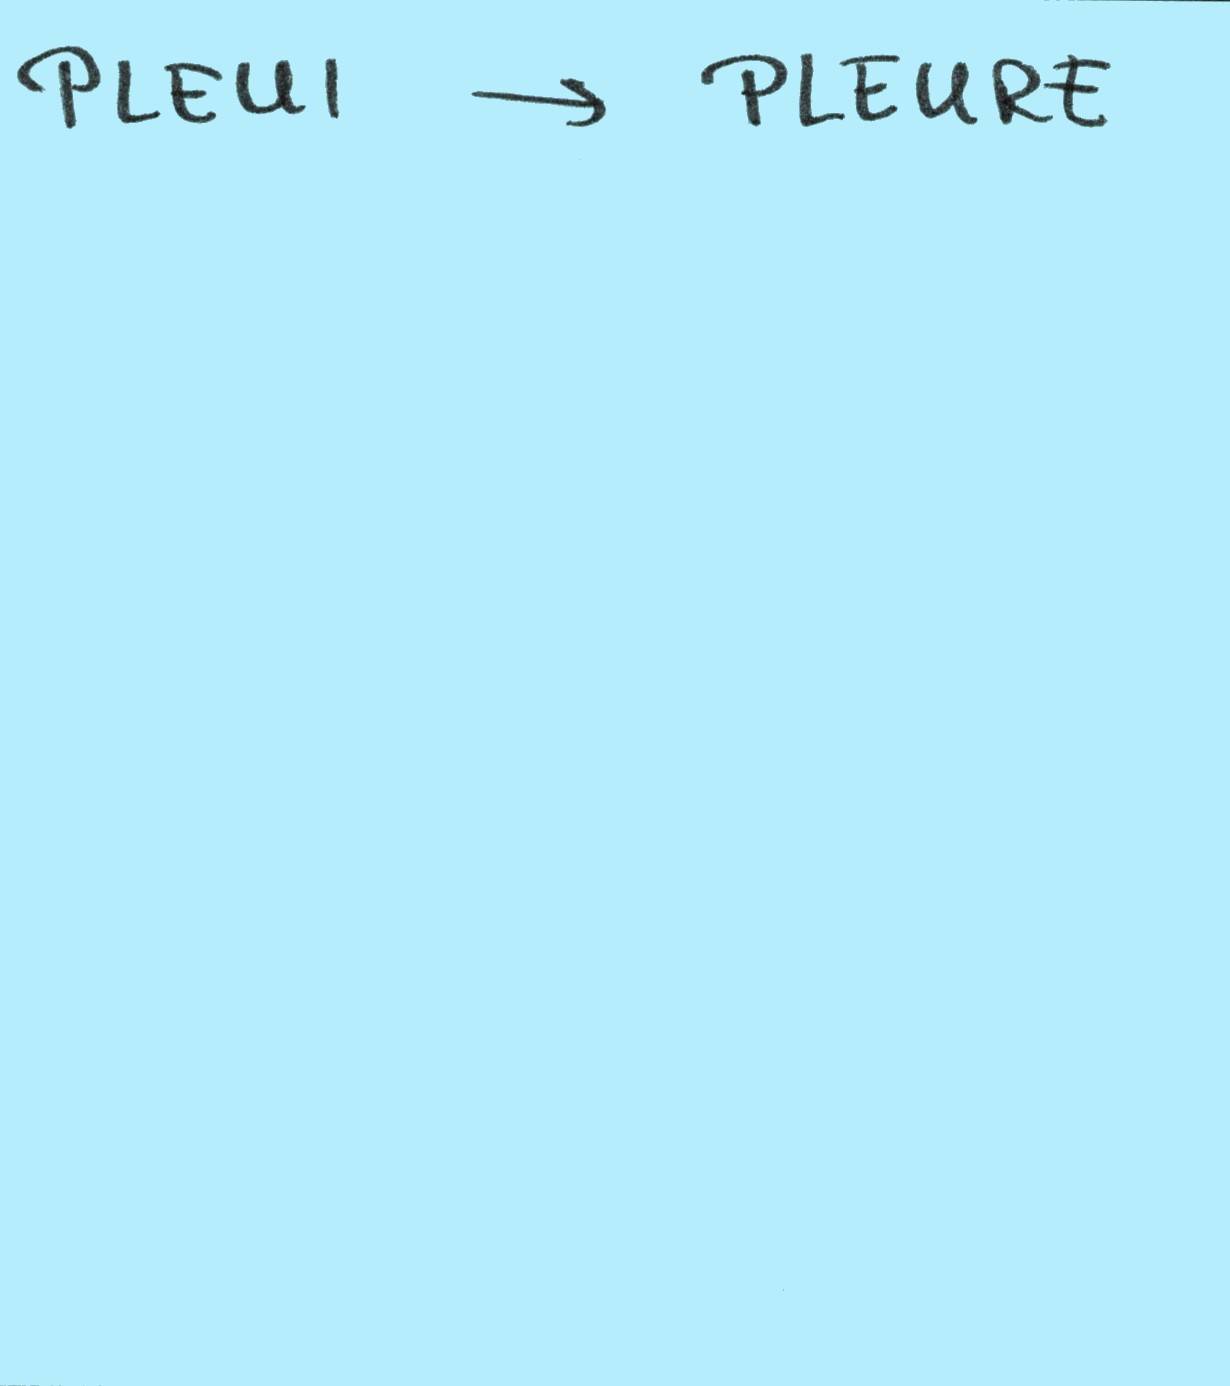 PLEUI → PLEURE